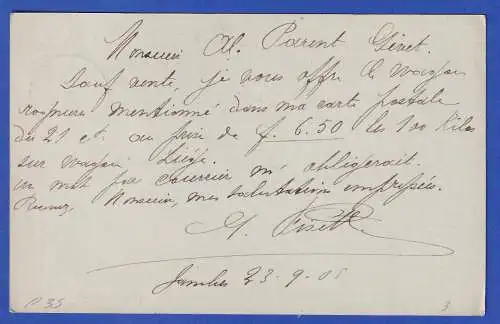 Monsieur Al. Parent Givet.
Sauf vente, je vous offre le wagon
rognures mentionné dans ma carte postale
du 21 ct. au prix de f. 6.50 les 100 Kilos
sur wagon Liége.
un mot par courrier m'obligerait.
Recevez, Monsieur, mes salutations empressées.
Jambes 23-9-05
P35
3